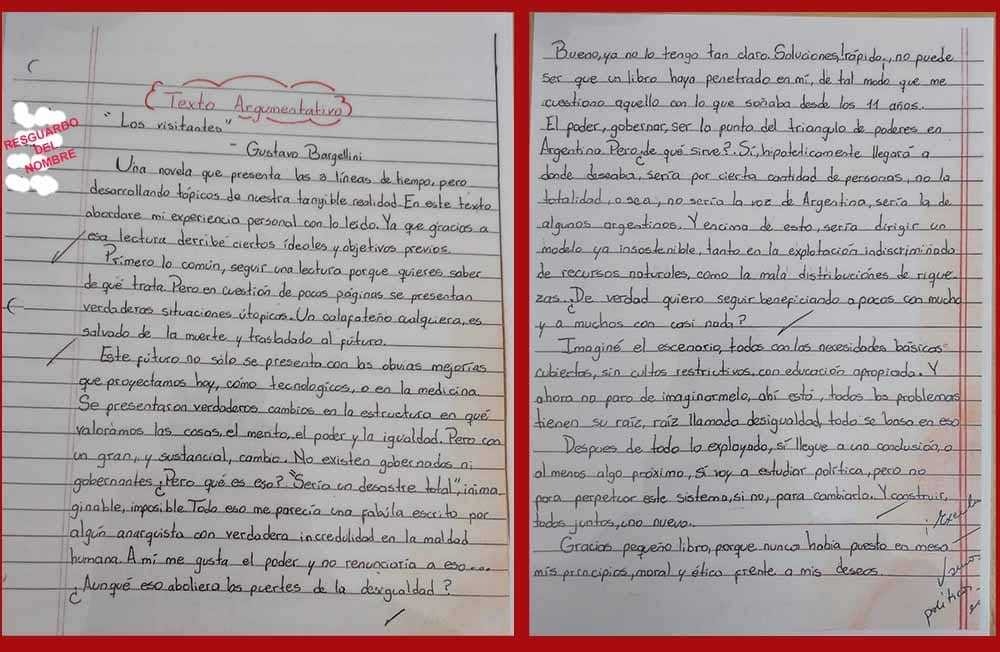 Texto Argumentativo
"Los visitantes"
- Gustavo Bargellini
RESGUARDO
DEL
NOMBRE
Una novela que presenta las 3 líneas de tiempo, pero
desarrollando tópicos de nuestra tangible realidad. En este texto
abordare mi experiencia personal con lo leído. Ya que gracias a
esa lectura derribé ciertos ideales y objetivos previos.
Primero lo común, seguir una lectura porque quieres saber
de qué trata. Pero en cuestión de pocas páginas se presentan
verdaderas situaciones útopicas. Un calafateño cualquiera, es
salvado de la muerte y trasladado al fúturo.
Este fúturo no sólo se presenta con las obvias mejorías
que proyectamos hoy, cómo tecnologicos, o en la medicina.
Se presentaron verdaderos cambios en la estructura en qué
valorámos las cosas, el merito, el poder y la igualdad. Pero con
un gran, y sustancial, cambio. No existen gobernados ni
gobernantes ¿Pero qué es eso? "Sería un desastre total", inima-
ginable, imposible Todo eso me parecía una fabúla escrito por
algún anarquista con verdadera incredulidad en la maldad
humana. A mí me gusta el poder y no renunciaria a eso....
¿Aunqué eso aboliera las puertes de la desigualdad?
Bueno, ya no lo tengo tan claro. Soluciones, ¡rápido!, no puede
ser que un libro haya penetrado en mí, de tal modo que me
cuestiono aquello con lo que soñaba desde los 11 años.
El poder, gobernar, ser la punta del triangulo de poderes en
Argentina. Pero ¿de qué sirve? Sí, hipoteticamente llegará a
donde deseaba, sería por cierta cantidad de personas, no la
totalidad, o sea, no sería la voz de Argentina, sería la de
algunos argentinos. Y encima de esto, sería dirigir un
modelo ya insostenible, tanto en la explotación indiscriminada
de recursos naturales, como la mala distribuciónes de rique-
zas. ¿De verdad quiero seguir beneficiando a pocos con mucho
y a muchos con casi nada?
Imaginé el escenario, todos con las necesidades básicas
cubiertas, sin cultos restrictivos, con educación apropiada. Y
ahora no paro de imaginarmelo, ahí está, todos los problemas
tienen su raíz, raíz llamada desigualdad, todo se basa en eso
Despues de todo lo explayado, sí llegue a una conclusión, o
al menos algo próximo, Sí voy a estudiar política, pero no
para perpetuar este sistema, si no, para cambiarlo. Y construir,
todos juntos, uno nuevo.
Gracias pequeño libro, porque nunca había puesto en mesa
mis principios, moral y ética frente a mis deseos.